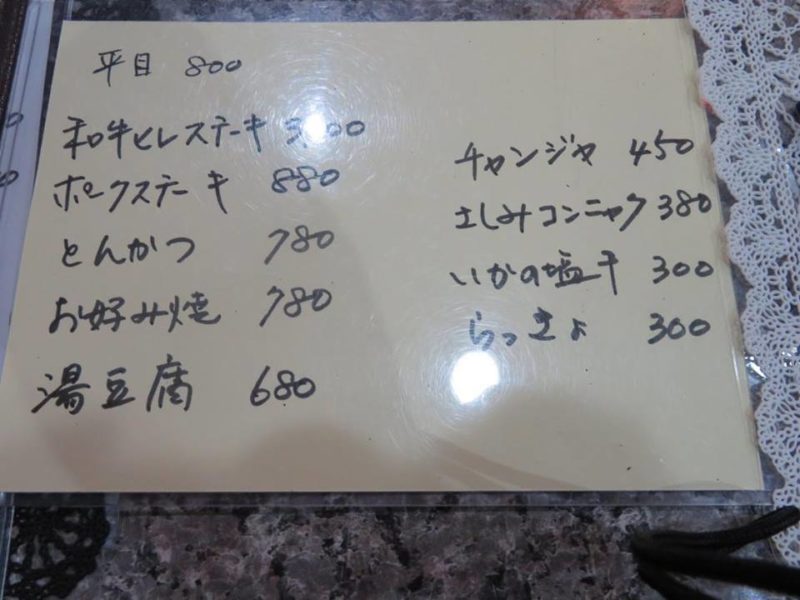 平目 800
和牛ヒレステーキ
ポークステーキ 880
とんかつ 780
お好み焼 780
湯豆腐 680
チャンジャ 450
さしみコンニャク 380
いかの塩干 300
らっきょ 300